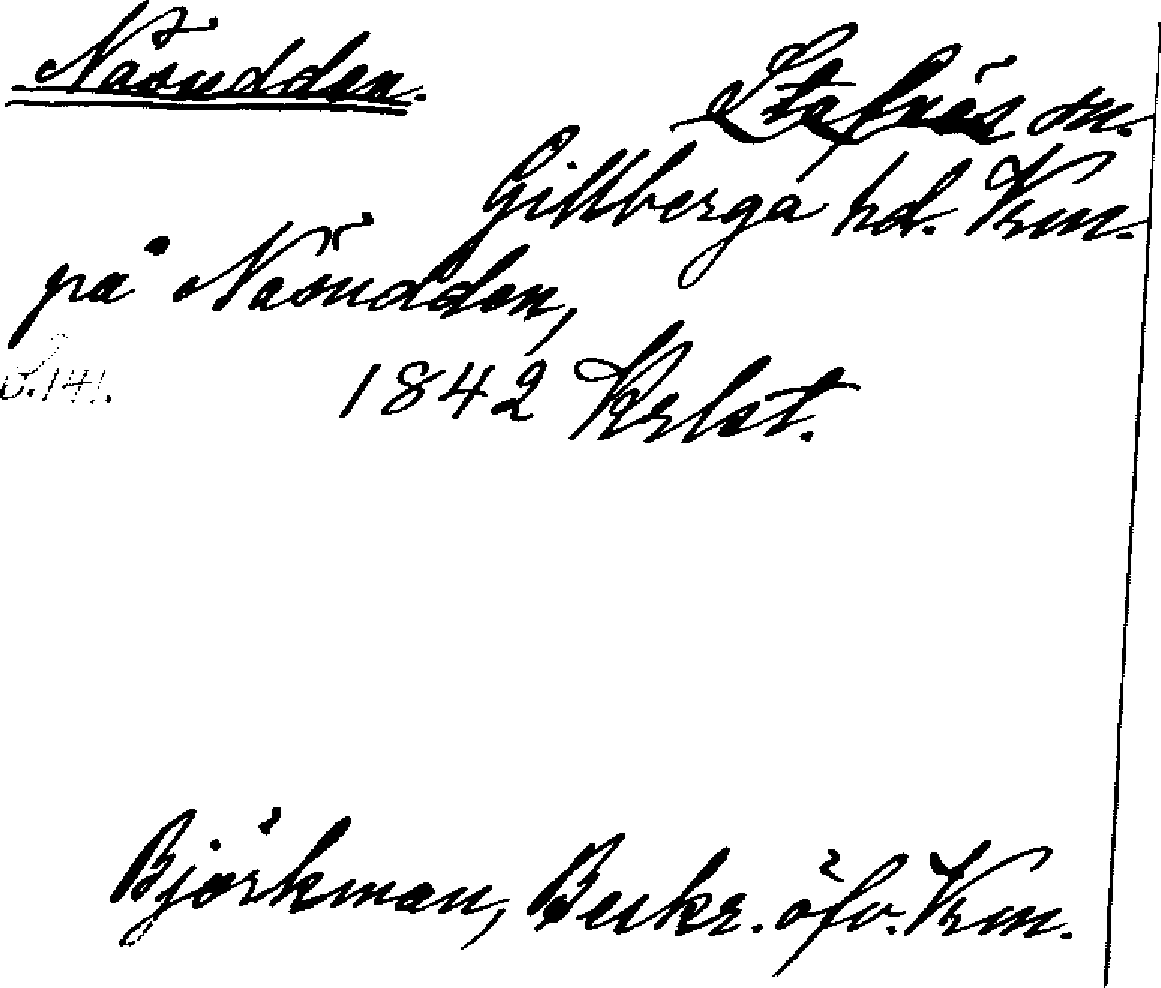 Näsudden.
Stafnäs sn.
Gillberga hd. Vrm.
på Näsudden,
s. 141.
1842 Krlst.
Björkman, Beskr. öfv. Vrm.